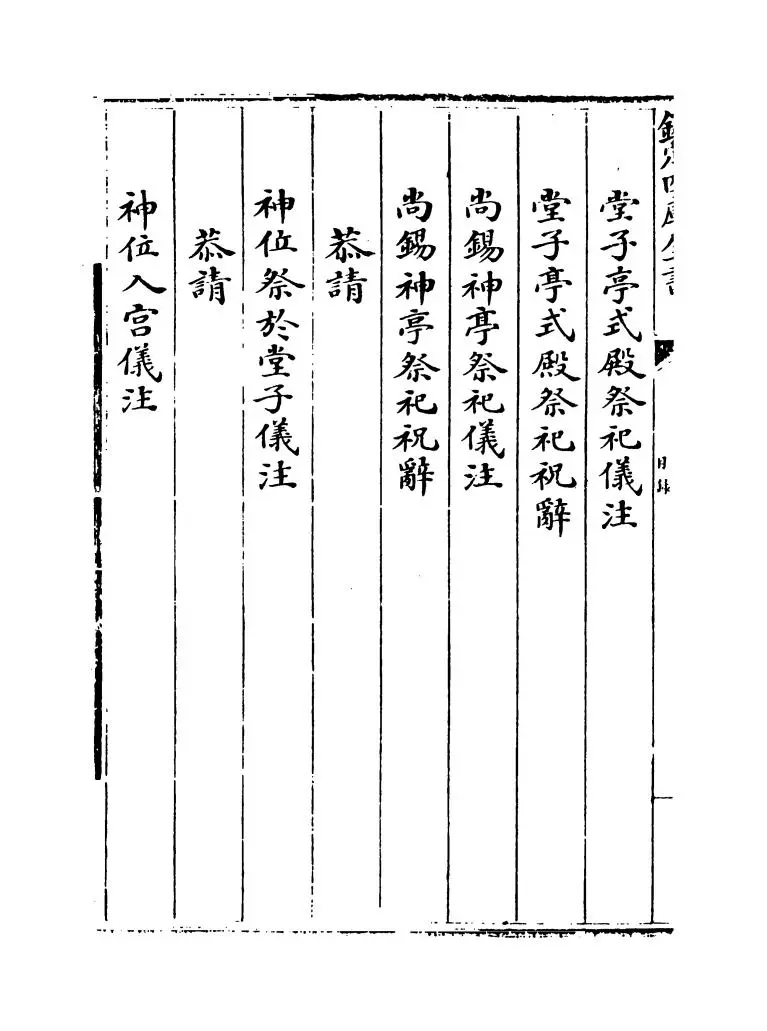 欽定四庫全書
目録
堂子亭式殿祭祀儀注
堂子亭式殿祭祀祝辭
尚錫神亭祭祀儀注
尚錫神亭祭祀祝辭
恭請
神位祭於堂子儀注
恭請
神位入宮儀注